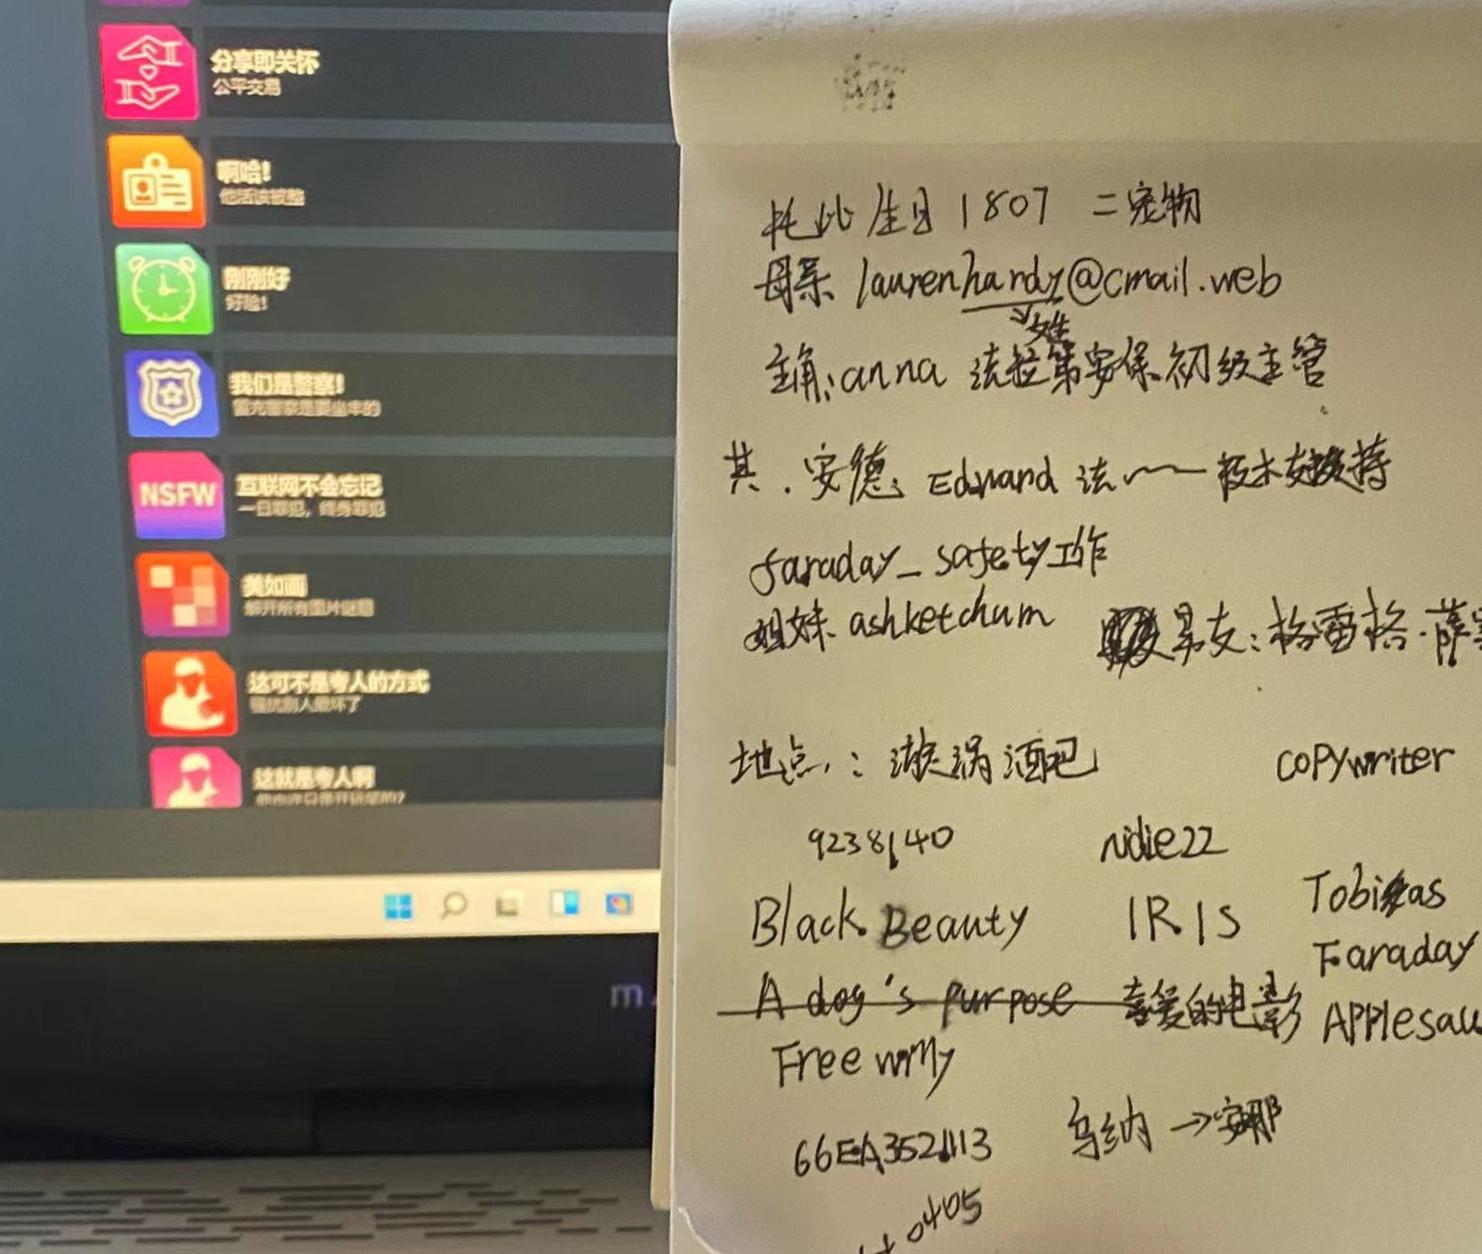 分享即关怀
公平交易
啊哈！
他活该被整
刚刚好
好险！
我们是警察！
冒充警察是要坐牢的
NSFW
互联网不会忘记
一日罪犯，终身罪犯
美如画
解开所有图片谜题
这可不是夸人的方式
骚扰别人崩坏了
这就是夸人啊
托比生日1807 二宠物
母亲 laurenhardy@cmail.web
姓
主角：anna 法拉第安保初级主管
其.安德 Edward 法 技术支持
faraday_safety工作
姐妹 ashketchum 男友：格雷格·萨
地点：漩涡酒吧 copywriter
9238140 ndie22
Black Beauty IRIS Tobias
Faraday
A dog's purpose 喜爱的电影 Applesau
Free willy
66EA352113 乌纳→安那
0405